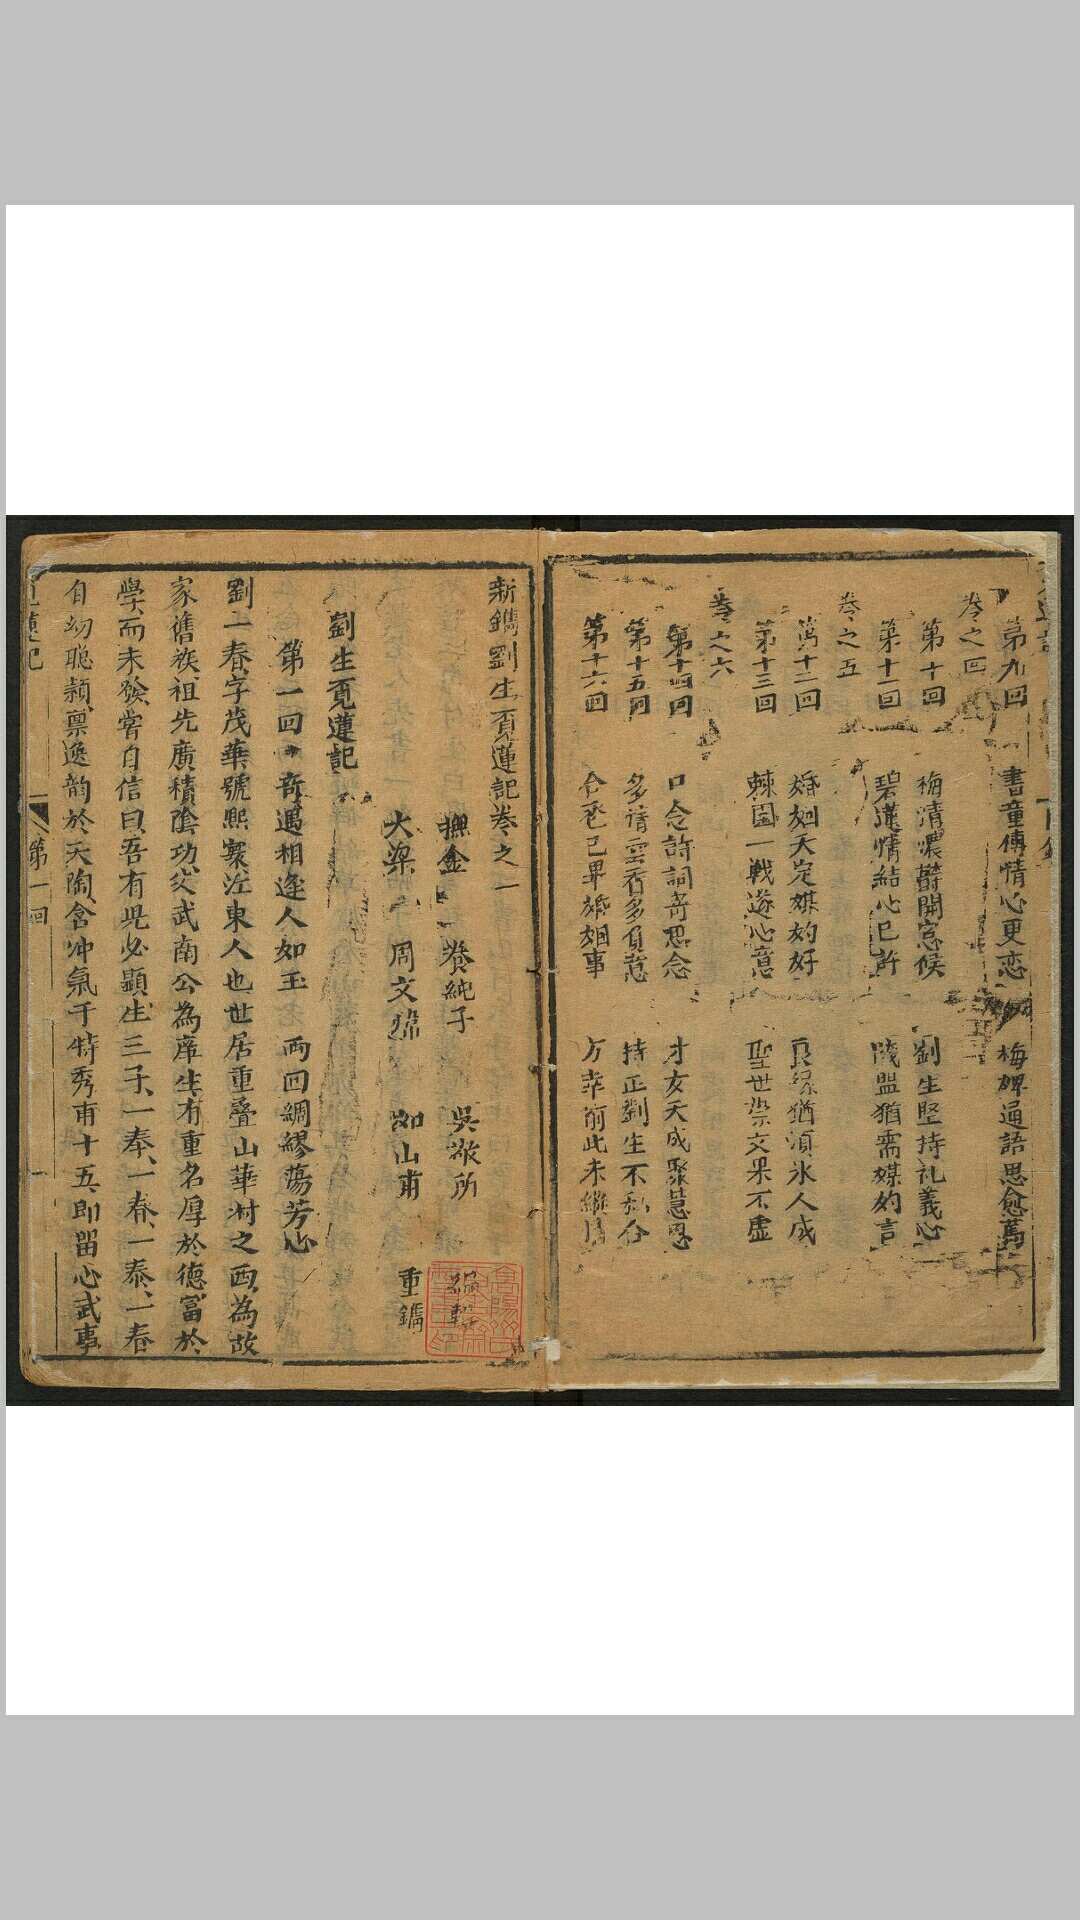 第九回 書童傳情心更恋 梅婢通語思愈篤
卷之四
第十回 梅清濃鬱開窓候 劉生堅持礼義心
第十一回 碧蓮情結心已許 踐盟猶需媒妁言
卷之五
第十二回 婚姻天定媒妁好 良緣猶須氷人成
第十三回 棘囯一戰遂心意 聖世崇文果不虛
卷之六
第十四回 口念詩詞寄思念 才女天成聚慧恩
第十五回 多請 看多負意 持正劉生不私合
第十六回 合卺已畢婚姻事 方幸前此未繼
新鐫劉生覓蓮記卷之一
撫金 養純子 吳敬所 編輯
大梁 周文煒 如山甫 重鐫
劉生覓蓮記
第一回 奇遇相逢人如玉 两回綢繆蕩芳心
劉一春字茂華號熙寰江東人也世居重叠山華村之西為故
家舊族祖先廣積陰功父武南公為庠生有重名厚於德富於
學而未發嘗自信曰吾有兒必顯生三子一奉一春一泰一春
自幼聪颖禀逸韵於天陶含冲氣于特秀甫十五即留心武事
覓蓮记 第一回